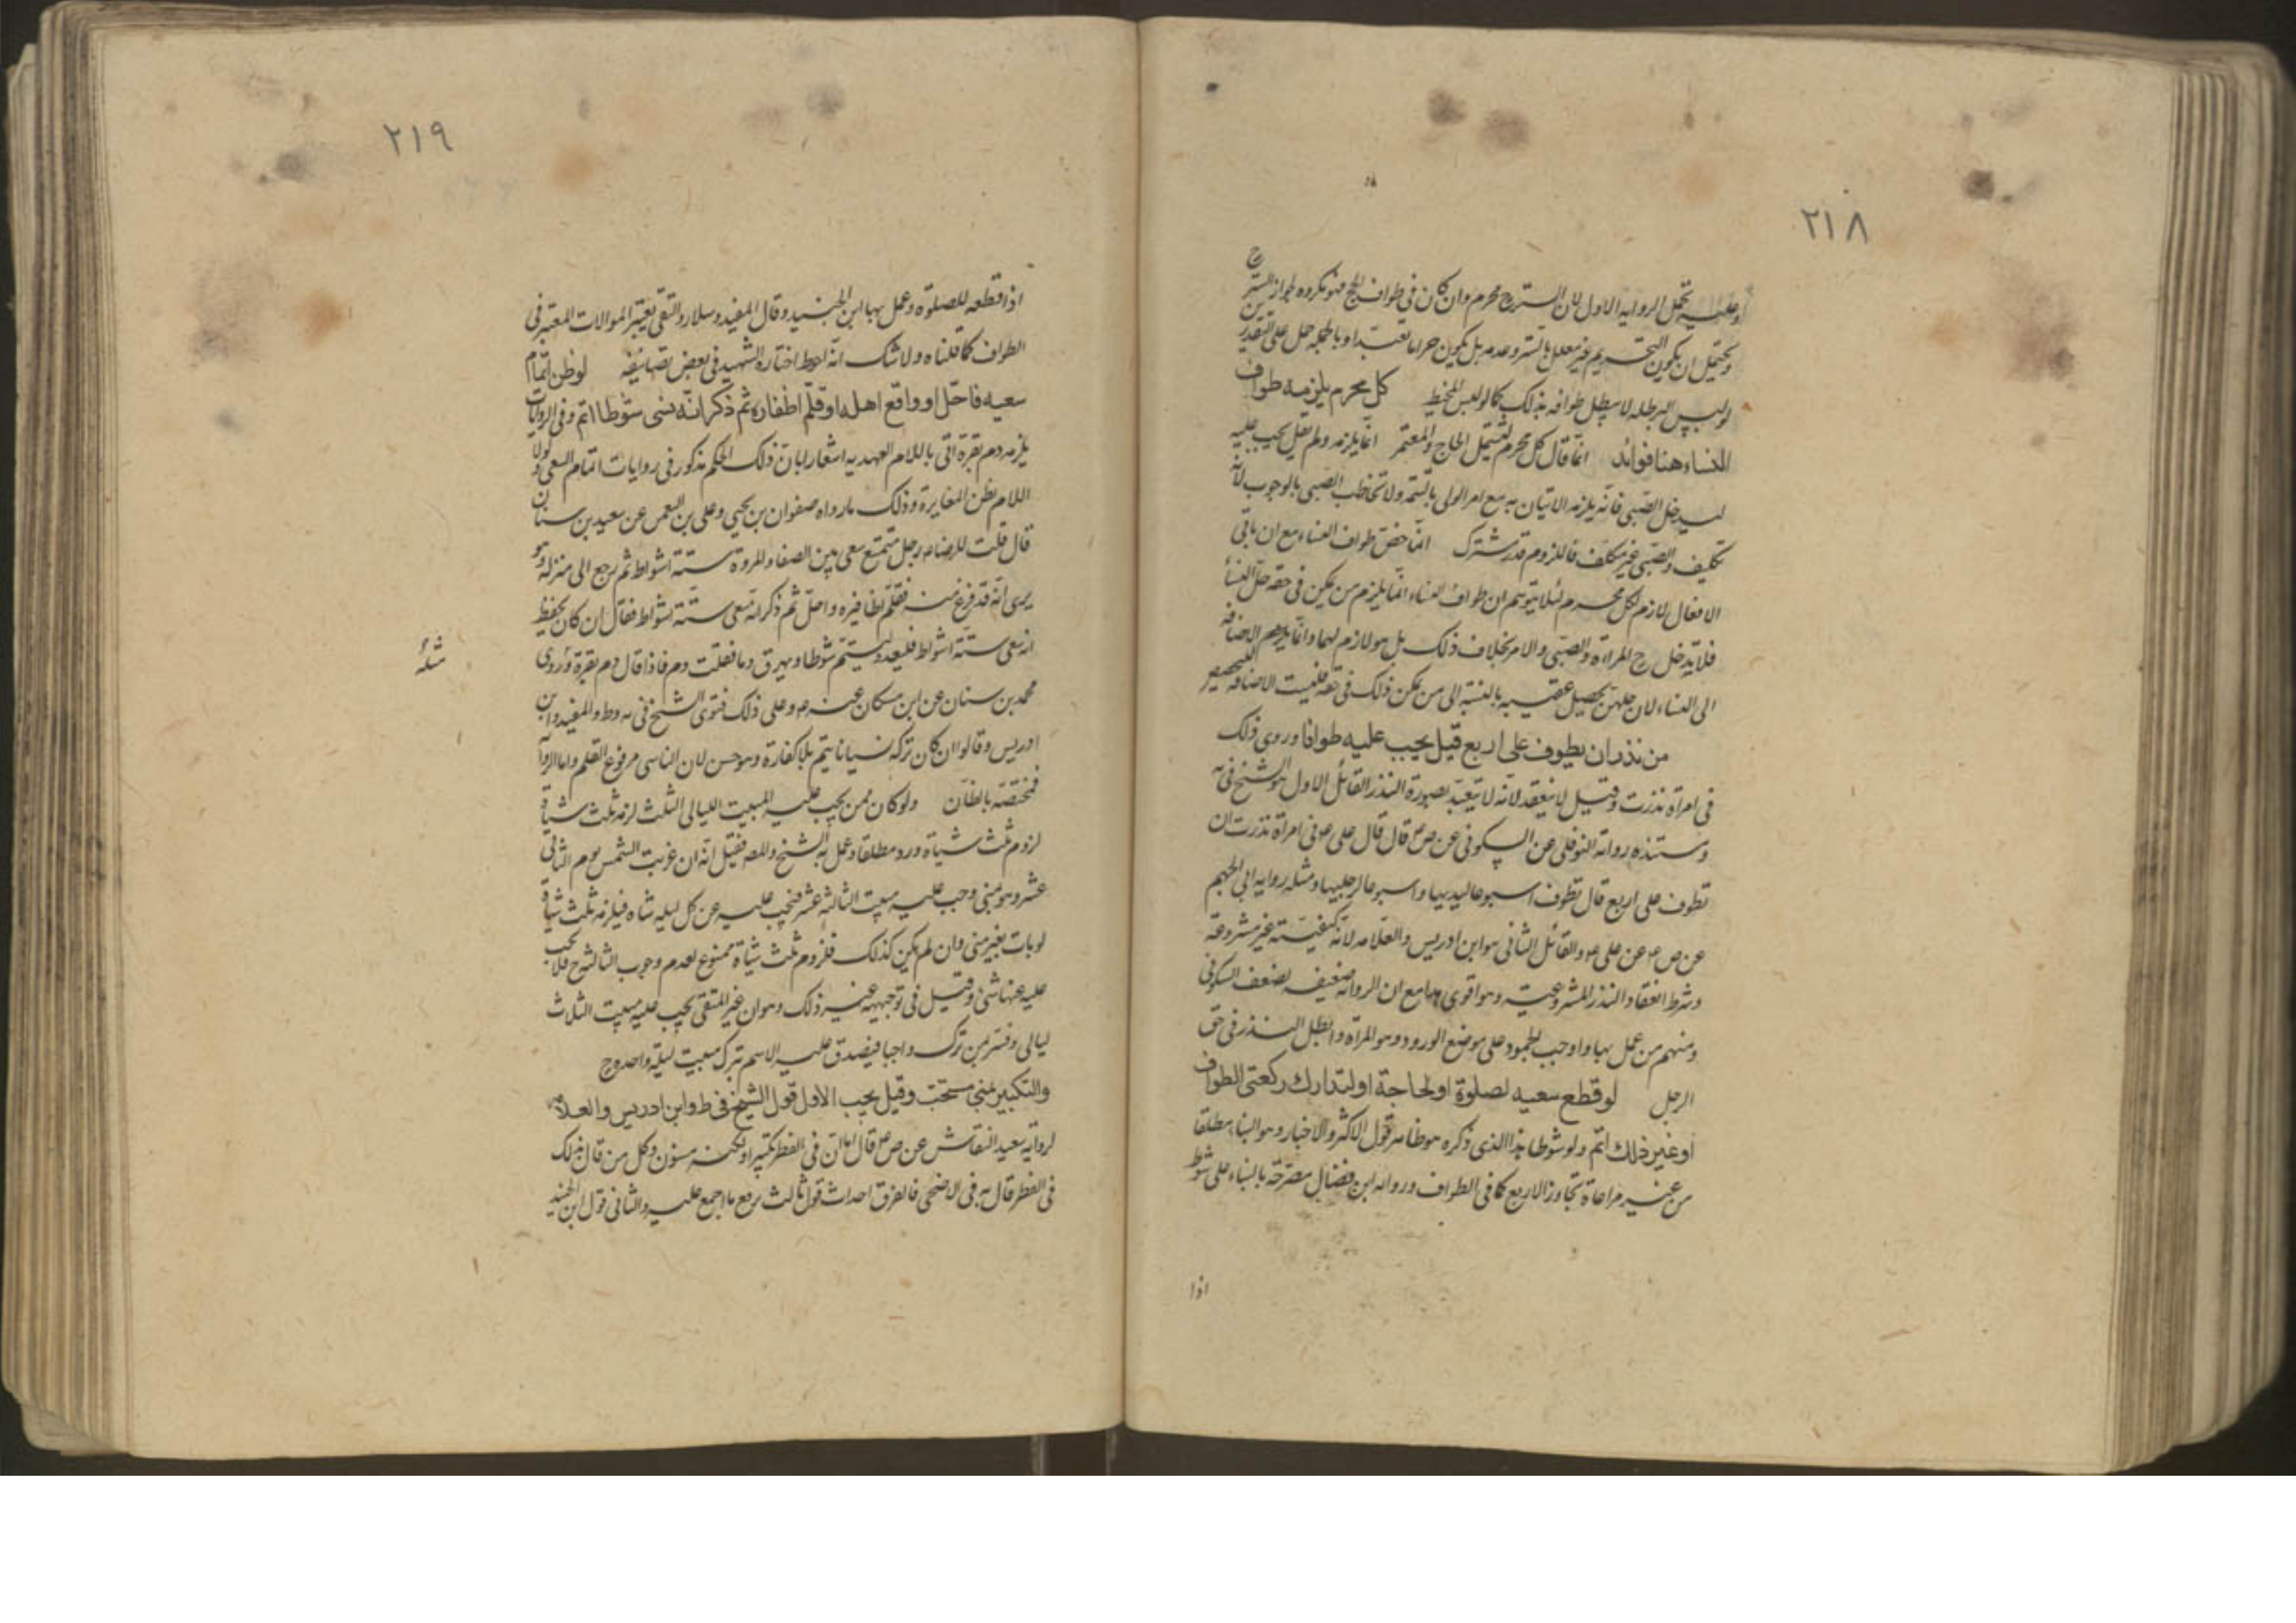 ٢١٨
وعليه تحمل الرواية الاول لان الستر ح محرم وان كان في طواف الحج فهو مكروه لجواز الستر ح
ويحتمل ان يكون التحريم غير معلل بالستر وعدمه بل يكون حراما تعبدا وبالجملة حل على التقديرين
لو لبس البرطلة لا يبطل طوافه بذلك كما لو لبس المخيط كل محرم يلزمه طواف
النساء هنا فوائد انما قال كل محرم لتشمل الحاج والمعتمر انما يلزمه ولم يقل يجب عليه
ليدخل الصبي فانه يلزمه الاتيان به مع امر الولي بالتمته ولا تخاطب الصبي بالوجوب لانه
تكليف والصبي غير مكلف فاللزوم قدر مشترك انما خص طواف النساء مع ان باقي
الافعال لازم لكل محرم لئلا يتوهم ان طواف النساء انما يلزم من يكون في حقه حل النساء
فلا يدخل ح المراة والصبي والامر بخلاف ذلك بل هو لازم لهما وانما يلزمهم الاضافة
الى النساء لان حلهن يحصل عقيبه بالنسبة الى من يمكن ذلك في حقه فليست الاضافة للتخصيص
من نذر ان يطوف على اربع قيل يجب عليه طوافا وروي ذلك
في امراة نذرت وقيل لا ينعقد لانه لا يتعبد بصورة النذر القائل الاول هو الشيخ في يه
ومستنده رواية النوفلي عن السكوني عن ص ع قال قال علي ع في امراة نذرت ان
تطوف على اربع قال تطوف اسبوعا ليديها واسبوعا لرجليها ومثله رواية ابي الجهم
عن ص ع عن علي ع والقائل الثاني هو ابن ادريس والعلامه لانه كيفية غير مشروعة
وشرط انعقاد النذر المشروعية وهو اقوى مع ان الرواية ضعيفه لضعف السكوني
ومنهم من عمل بها واوجب الجمود على موضع الورود وهو المراة وابطل النذر في حق
الرجل لو قطع سعيه لصلوة او لحاجة او لتدارك ركعتي الطواف
او غير ذلك اتم ولو شوطا هذا الذي ذكره هو ظاهر قول الاكثر والاخبار وهو البناء مطلقا
من غير مراعاة تجاوز الاربع كما في الطواف ورواية ابن فضال مصرحة بالبناء على شوط
اذا
٢١٩
اذا قطعه للصلوة وعمل بها ابن الجنيد وقال المفيد وسلار والتقي يعتبر الموالات المعتبر في
الطواف كما قلناه ولا شك انه احوط اختاره الشهيد في بعض تصانيفه لو ظن اتمام
سعيه فاحل او واقع اهله او قلم اظفاره ثم ذكر انه نسى شوطا اتم وفي الروايات
يلزمه دم بقرة اتى باللام العهديه اشعارا بان ذلك الحكم مذكور في روايات اتمام السعي ولولا
اللام لظن المغايرة وذلك ما رواه صفوان بن يحيى وعلي بن النعمن عن سعيد بن سنان
قال قلت للرضا ع رجل متمتع سعى بين الصفا والمروة ستة اشواط ثم رجع الى منزله وهو
يرى انه قد فرغ منه فقلم اظافيره واحل ثم ذكر انه سعى ستة اشواط فقال ان كان يحفظ
انه سعى ستة اشواط فليعد وليتم شوطا ويهرق دما فقلت دم فاذا قال دم بقرة وروى
مثله
محمد بن سنان عن ابن مسكان عنه ع وعلى ذلك فتوى الشيخ في يه وط والمفيد وابن
ادريس وقالوا ان كان تركه نسيانا يتم بلا كفارة وهو حسن لان الناسي مرفوع القلم واما الرواية
فمختصة بالظان ولو كان ممن يجب عليه المبيت الليالي الثلث لزمه ثلث شياه
لزوم ثلث شياه ورد مطلقا وعمل به الشيخ والمص فقيل انه ان غربت الشمس يوم الثاني
عشر وهو بمنى وجب عليه مبيت الثالثة عشر فيجب عليه عن كل ليلة شاه فيلزمه ثلث شياه
لو بات بغير منى وان لم يكن كذلك فلزوم ثلث شياة ممنوع لعدم وجوب الثالثة ح فلا يجب
عليه عنها شئ وقيل في توجيهه غير ذلك وهو ان غير المتقى يجب عليه مبيت الثلاث
ليالي وفسر من ترك واجبا فيصدق عليه الاسم بترك مبيت ليلة واحدة ح
والتكبير بمنى مستحب وقيل يجب الاول قول الشيخ في ط وابن ادريس والعلامه
لرواية سعيد النقاش عن ص ع قال اما ان في الفطر تكبيرا ولكنه مسنون وكل من قال بذلك
في الفطر قال به في الاضحى فالفرق احداث قول ثالث يرفع ما اجمع عليه والثاني قول ابن الجنيد